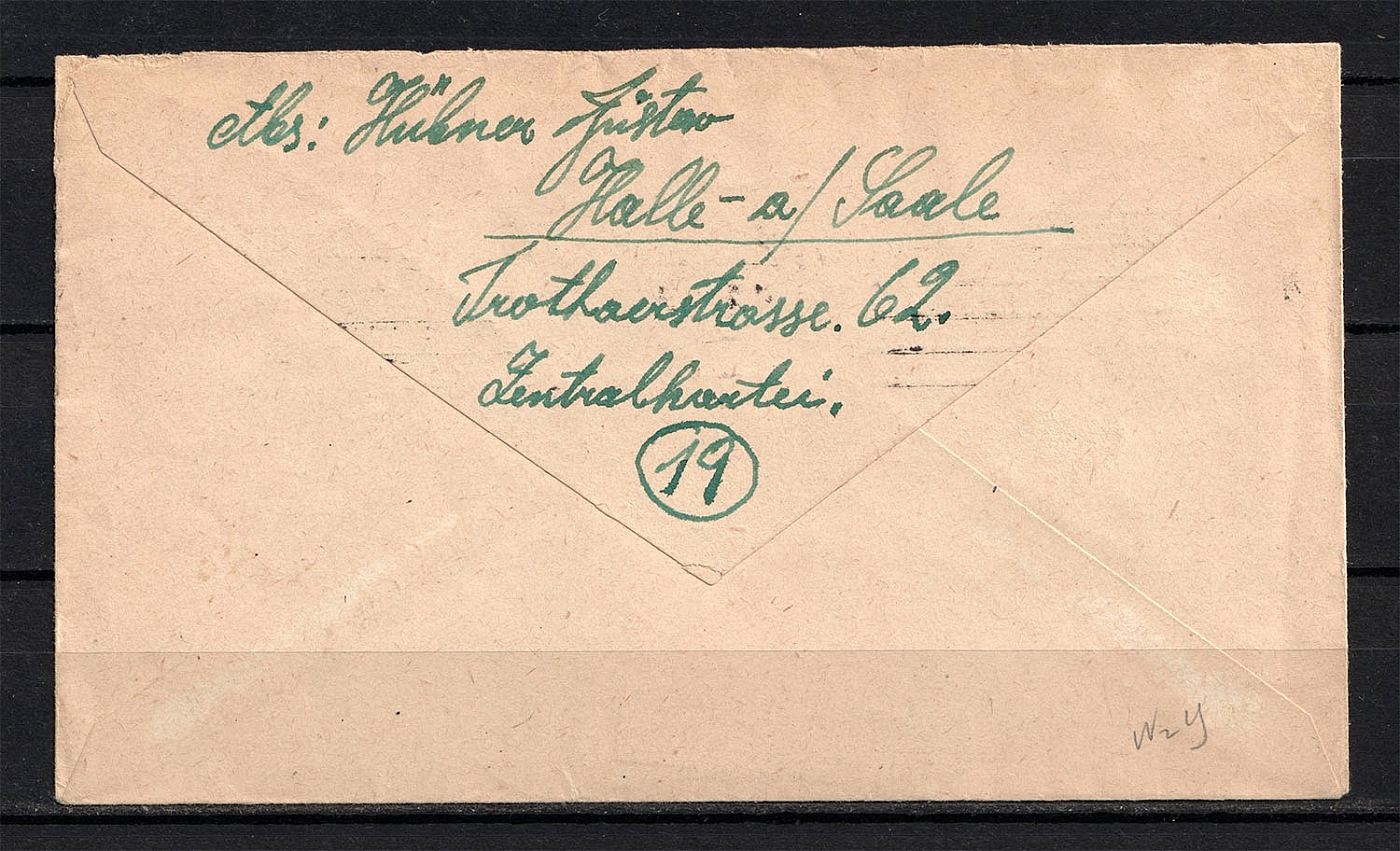 Abs: Hübner Gustav
Halle - a/ Saale
Trothaerstrasse. 62.
Zentralkartei.
19